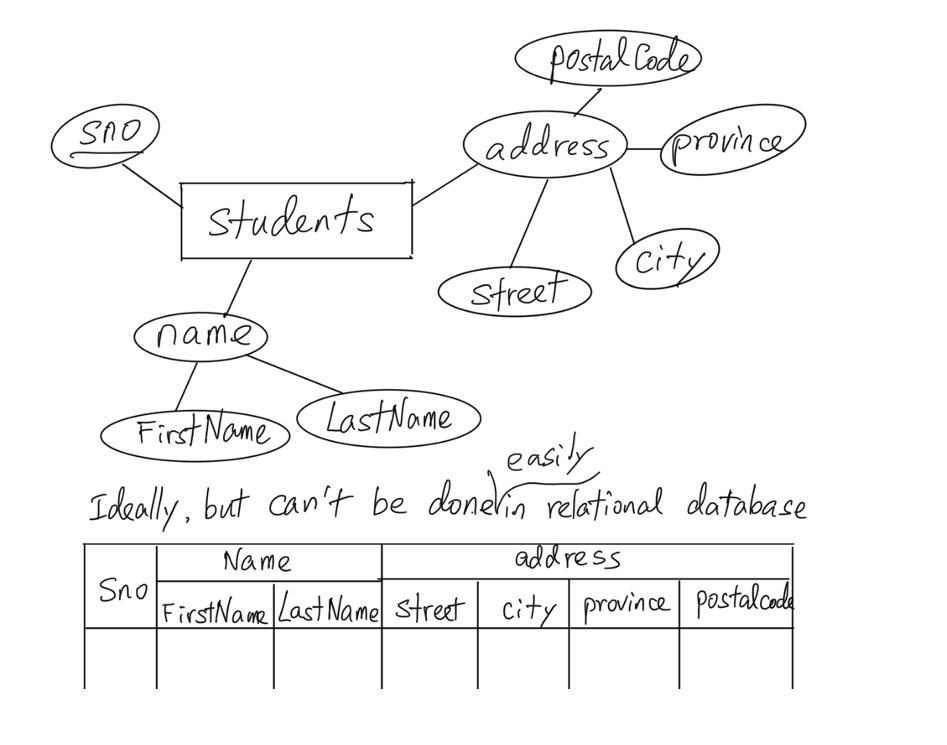 postalCode
sno
address
province
students
city
street
name
FirstName
LastName
easily
Ideally, but can't be done in relational database
Name address
Sno
FirstName LastName street city province postalcode